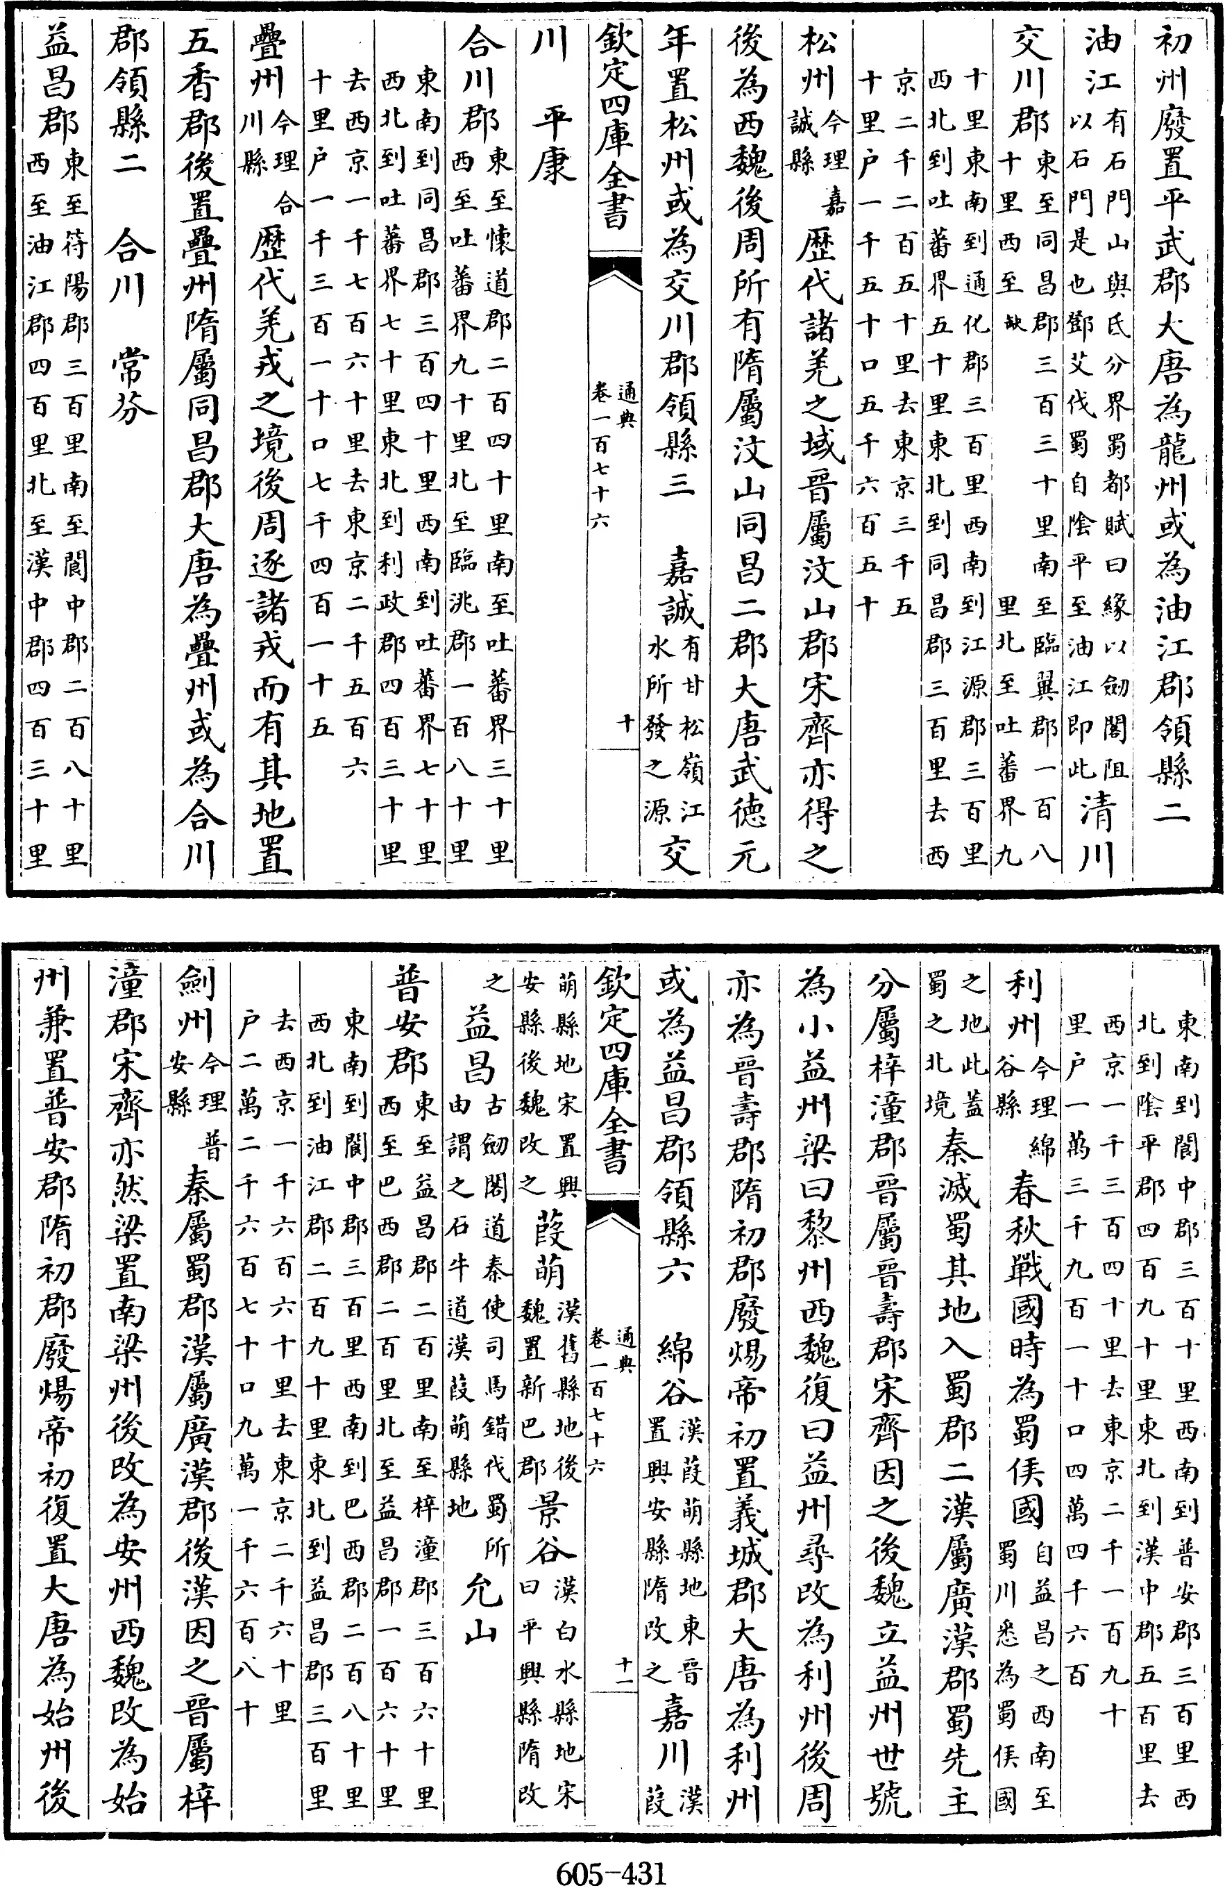 初州廢置平武郡大唐為龍州或為油江郡領縣二
油江有石門山與氐分界蜀都賦曰緣以劒閣阻以石門是也鄧艾伐蜀自陰平至油江即此清川
交川郡東至同昌郡三百三十里南至臨翼郡一百八十里西至缺里北至吐蕃界九
十里東南到通化郡三百里西南到江源郡三百里西北到吐蕃界五十里東北到同昌郡三百里去西
京二千二百五十里去東京三千五十里户一千五十口五千六百五十
松州今理嘉誠縣歴代諸羌之域晉屬汶山郡宋齊亦得之
後為西魏後周所有隋屬汶山同昌二郡大唐武徳元
年置松州或為交川郡領縣三 嘉誠有甘松嶺江水所發之源交
欽定四庫全書 通典卷一百七十六 十
川 平康
合川郡東至懷道郡二百四十里南至吐蕃界三十里西至吐蕃界九十里北至臨洮郡一百八十里
東南到同昌郡三百四十里西南到吐蕃界七十里西北到吐蕃界七十里東北到利政郡四百三十里
去西京一千七百六十里去東京二千五百六十里户一千三百一十口七千四百一十五
疊州今理合川縣歴代羌戎之境後周逐諸戎而有其地置
五香郡後置疊州隋屬同昌郡大唐為疊州或為合川
郡領縣二 合川 常芬
益昌郡東至符陽郡三百里南至閬中郡二百八十里西至油江郡四百里北至漢中郡四百三十里
東南到閬中郡三百十里西南到普安郡三百里西北到陰平郡四百九十里東北到漢中郡五百里去
西京一千三百四十里去東京二千一百九十里户一萬三千九百一十口四萬四千六百
利州今理綿谷縣春秋戰國時為蜀侯國自益昌之西南至蜀川悉為蜀侯國
之地此蓋蜀之北境秦滅蜀其地入蜀郡二漢屬廣漢郡蜀先主
分屬梓潼郡晉屬晉壽郡宋齊因之後魏立益州世號
為小益州梁曰黎州西魏復曰益州尋改為利州後周
亦為晉壽郡隋初郡廢煬帝初置義城郡大唐為利州
或為益昌郡領縣六 綿谷漢葭萌縣地東晉置興安縣隋改之嘉川漢葭
欽定四庫全書 通典卷一百七十六 十一
萌縣地宋置興安縣後魏改之葭萌漢舊縣地後魏置新巴郡景谷漢白水縣地宋曰平興縣隋改
之益昌古劒閣道秦使司馬錯伐蜀所由謂之石牛道漢葭萌縣地允山
普安郡東至益昌郡二百里南至梓潼郡三百六十里西至巴西郡二百里北至益昌郡一百六十里
東南到閬中郡三百里西南到巴西郡二百八十里西北到油江郡二百九十里東北到益昌郡三百里
去西京一千六百六十里去東京二千六十里户二萬二千六百七十口九萬一千六百八十
劍州今理普安縣秦屬蜀郡漢屬廣漢郡後漢因之晉屬梓
潼郡宋齊亦然梁置南梁州後改為安州西魏改為始
州兼置普安郡隋初郡廢煬帝初復置大唐為始州後
605-431